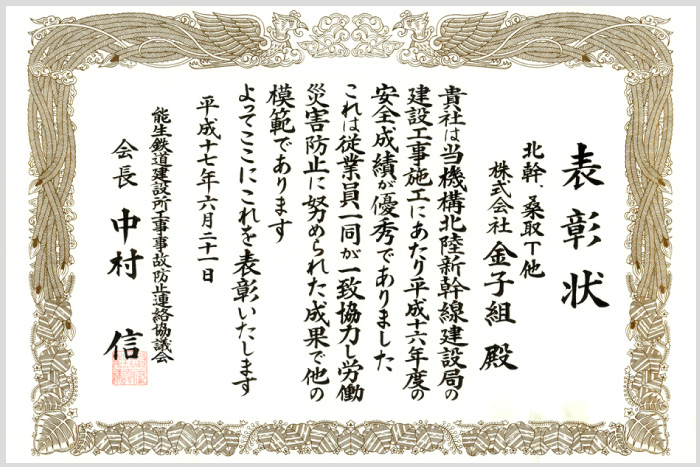 表彰状
北幹、桑取T他
株式会社 金子組 殿
貴社は当機構北陸新幹線建設局の
建設工事施工にあたり平成十六年度の
安全成績が優秀でありました
これは従業員一同が一致協力し労働
災害防止に努められた成果で他の
模範であります
よってここにこれを表彰いたします
平成十七年六月二十一日
能生鉄道建設所工事事故防止連絡協議会
会長 中村 信